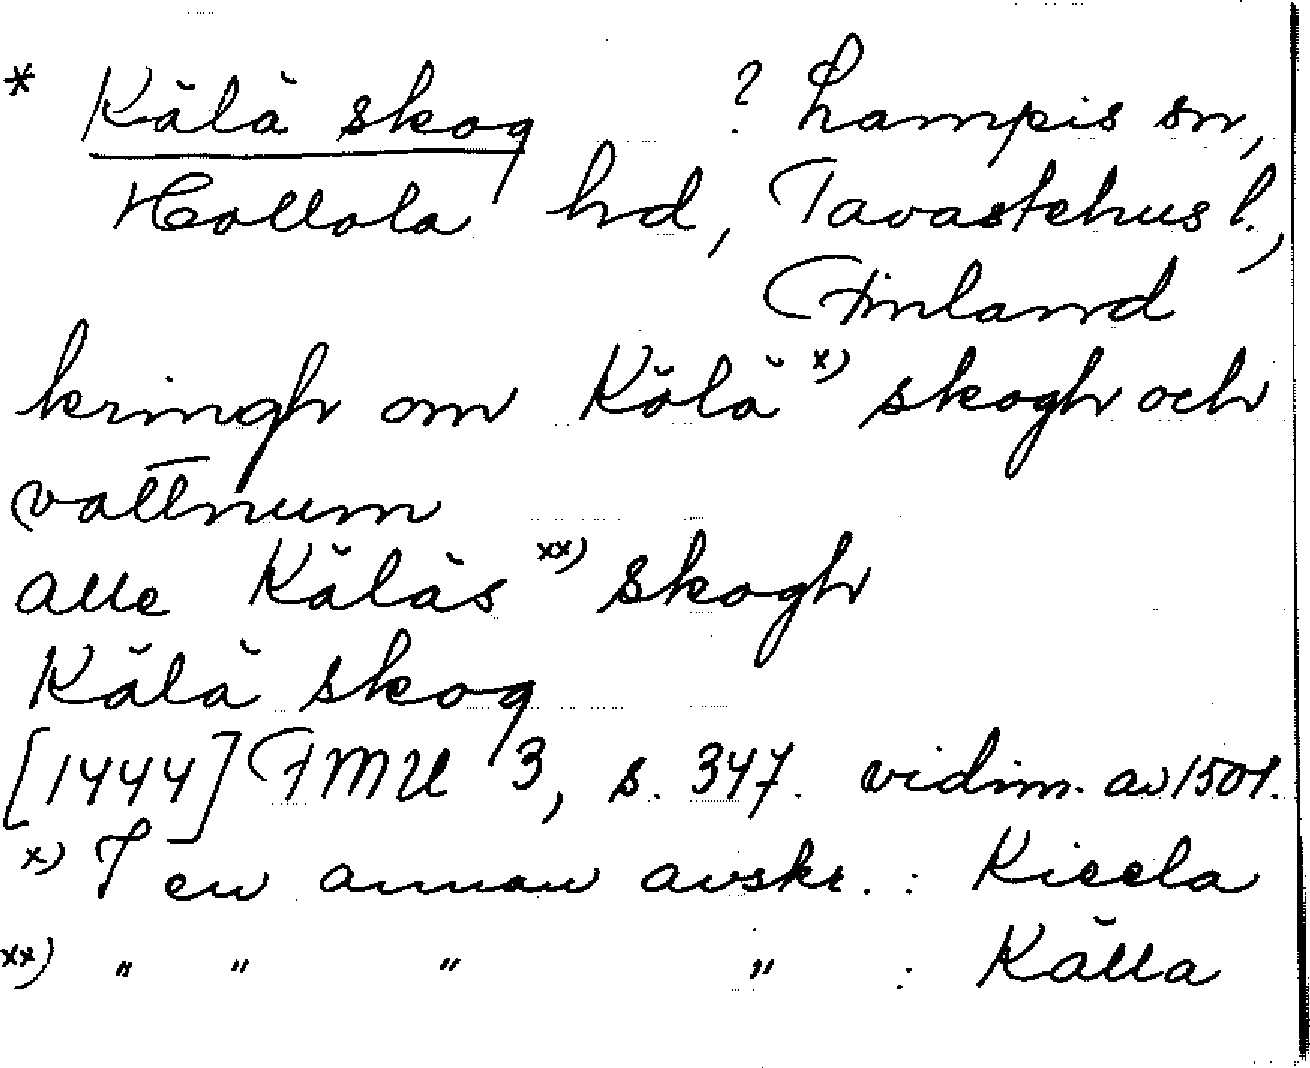 * Kälä skog ? Lampis sn,
Hollola hd, Tavastehus l.,
Finland
kringh om Kälä x) skogh och
vattnum
alle Käläs xx) skogh
Kälä skog
[1444] FMU 3, s. 347. vidim. av 1501.
x) I en annan avskr. : Kieela
xx) " " " " : Källa